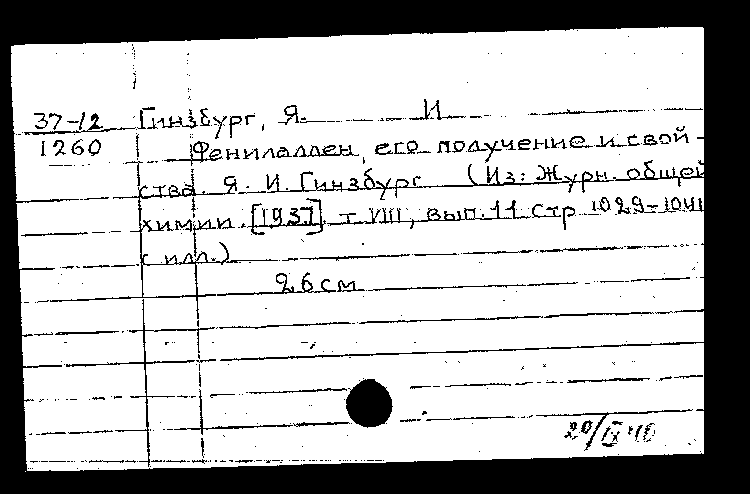 37-12 Гинзбург, Я. И
1260 Фенилаллен, его получение и свой-
ства. Я. И. Гинзбург (Из: Журн. общей
химии. [1937]. т VIII, вып. 11 стр 1029-1041
с илл.)
26 см
20/IX 40